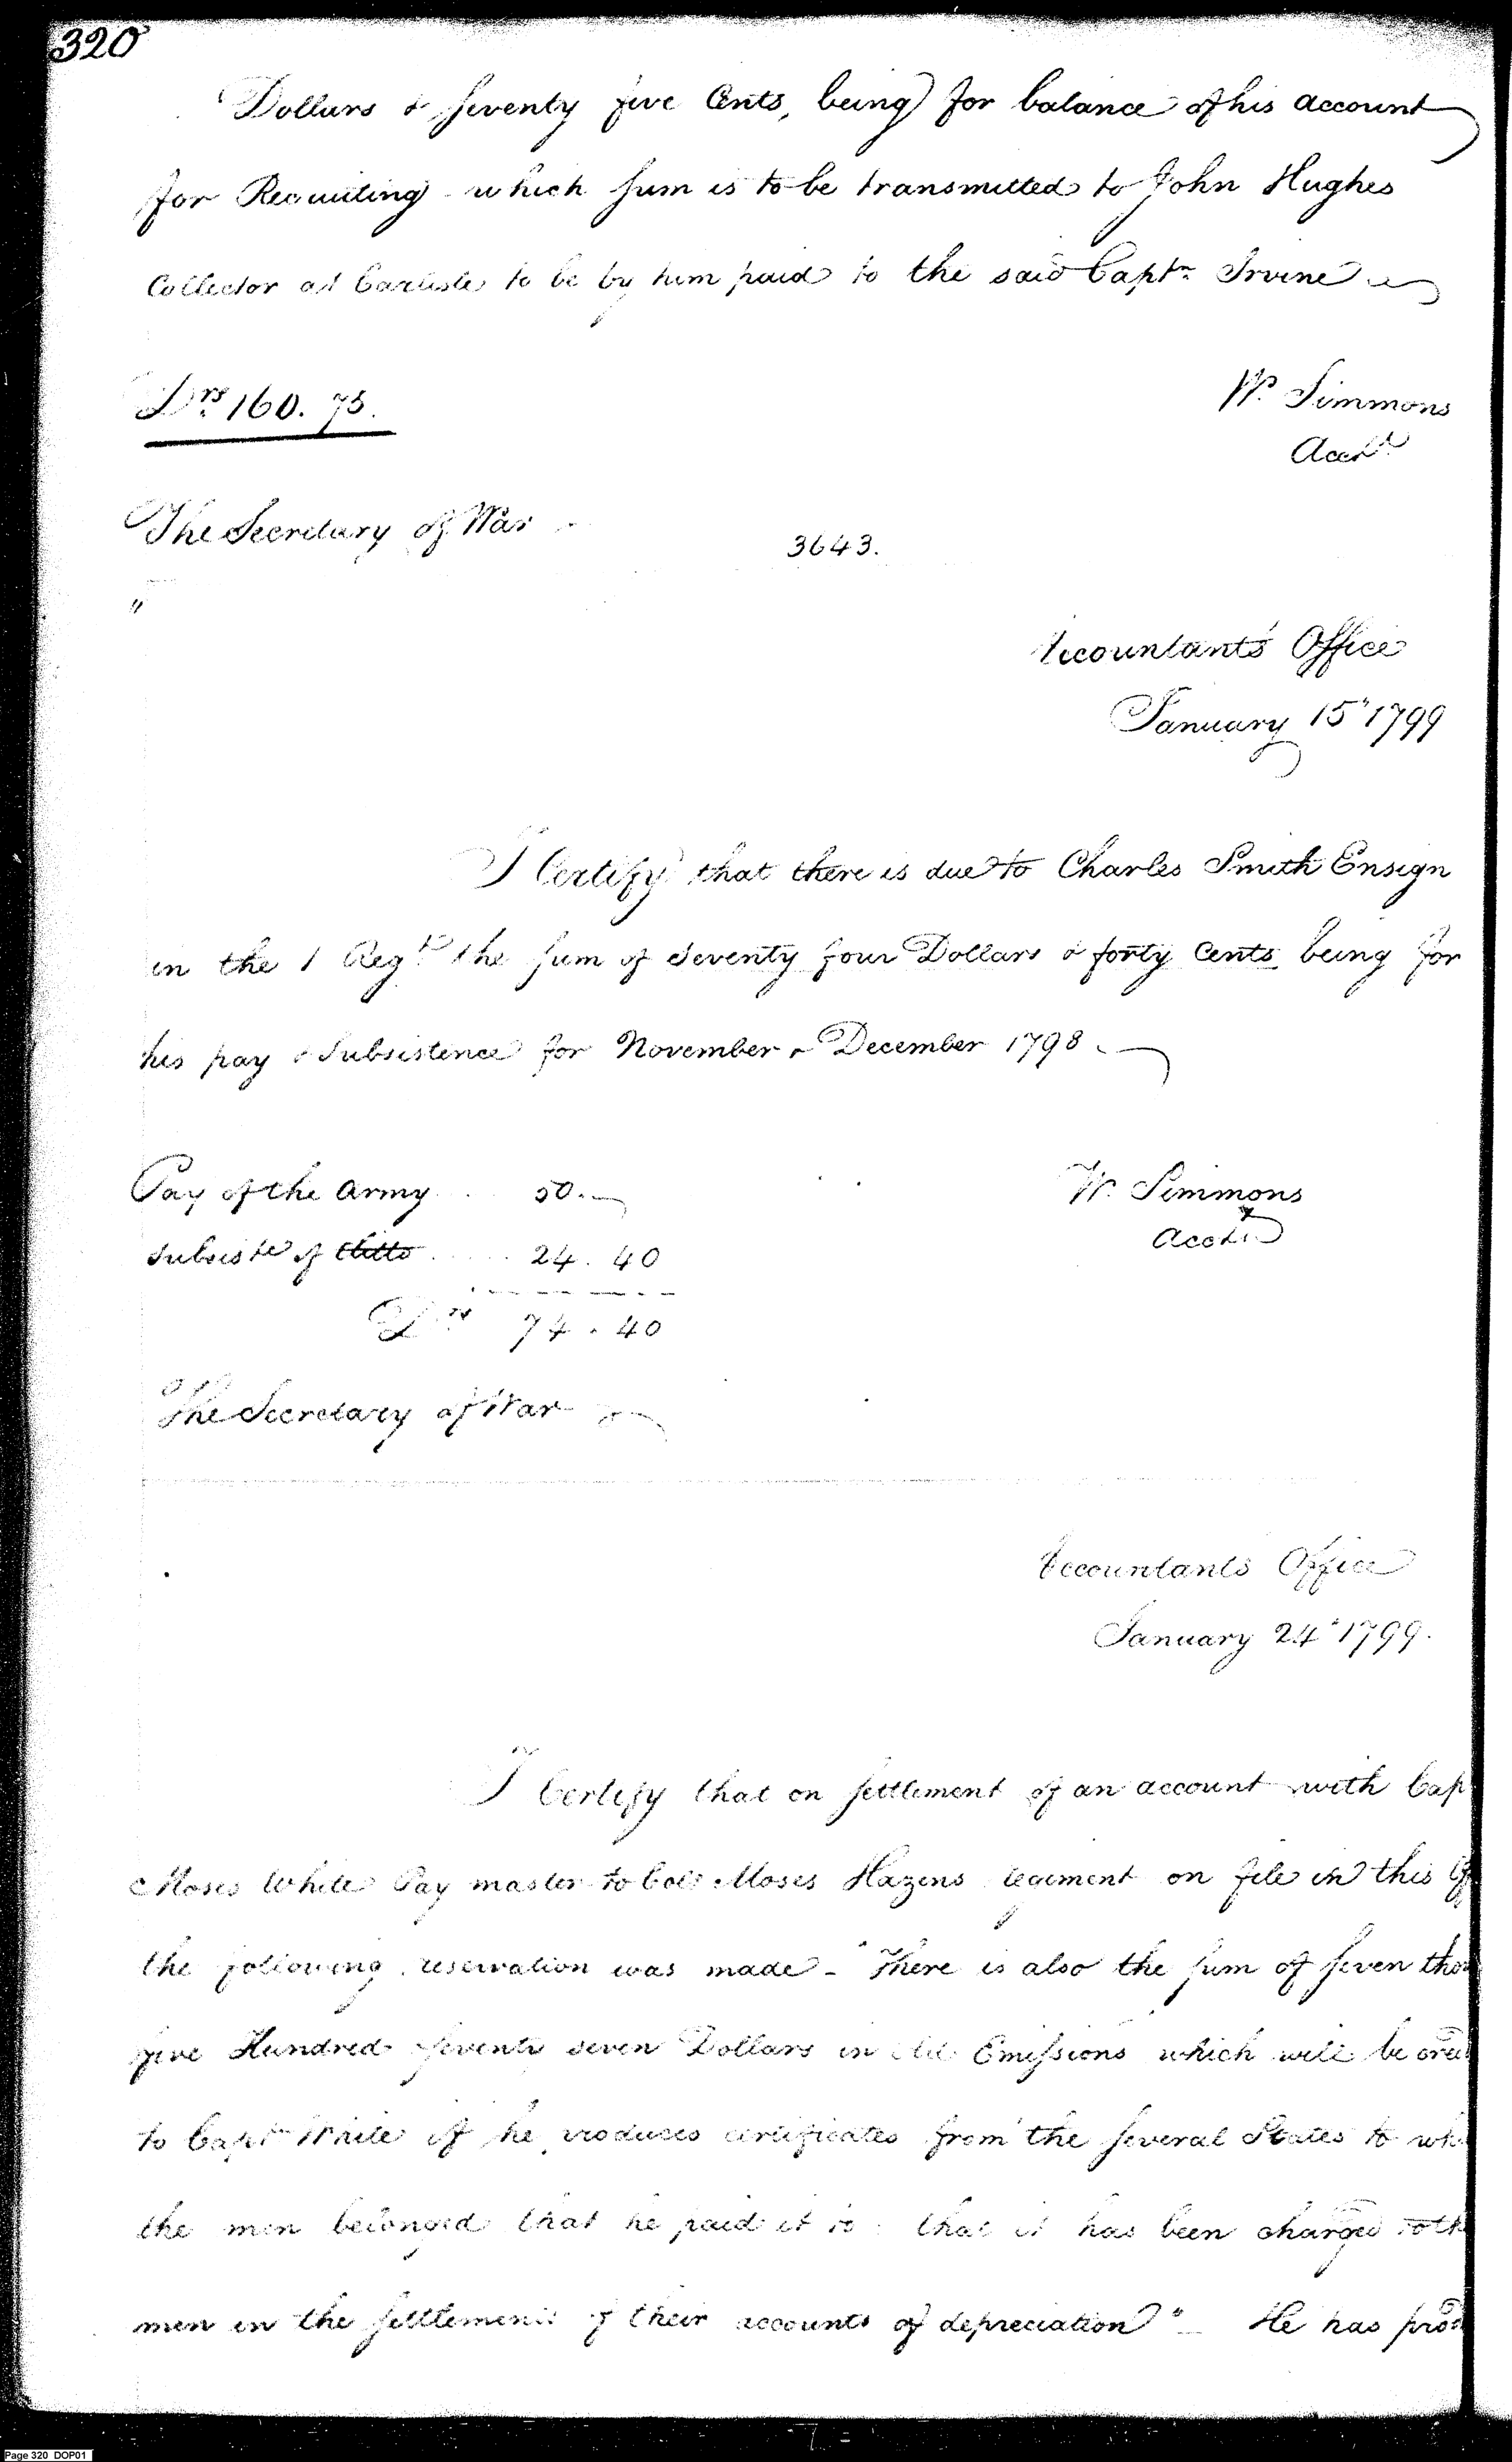 320
Dollars & seventy five Cents, being for balance of his account
for Recruiting which sum is to be transmitted to John Hughes
Collector at Carlisle to be by him paid to the said Captn. Irvine
Drs. 160. 75.
W. Simmons
Accnt.
The Secretary of War
3643.
"
Accountants Office
January 15" 1799
I Certify that there is due to Charles Smith Ensign
in the 1 Regt. the sum of Seventy four Dollars & forty Cents being for
his pay & Subsistence for November & December 1798.
Pay of the Army . . 50.
W. Simmons
Subsistce of ditto . . . . 24. 40
Acctnt
Drs 74. 40
The Secretary of War
Accountants Office
January 24" 1799.
I Certify that on settlement of an account with Cap
Moses White Pay master to Colo. Moses Hazens regiment on file in this Of
the following reservation was made - "There is also the sum of seven thou
five Hundred seventy seven Dollars in old Emissions which will be cred
to Captn White if he produces certificates from the several States to wh
the men belonged that he paid it to & that it has been charged to th
men in the settlements of their accounts of depreciation" He has prod
Page 320 DOP01